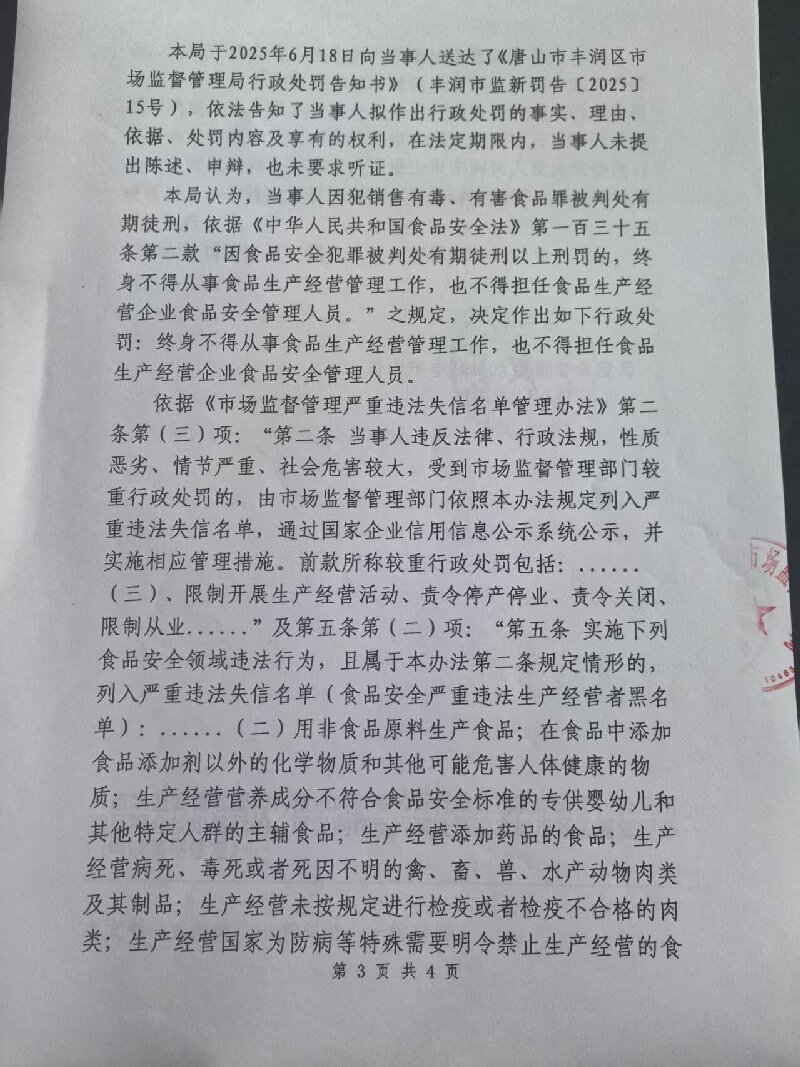 本局于2025年6月18日向当事人送达了《唐山市丰润区市
场监督管理局行政处罚告知书》（丰润市监新罚告〔2025〕
15号），依法告知了当事人拟作出行政处罚的事实、理由、
依据、处罚内容及享有的权利，在法定期限内，当事人未提
出陈述、申辩，也未要求听证。
本局认为，当事人因犯销售有毒、有害食品罪被判处有
期徒刑，依据《中华人民共和国食品安全法》第一百三十五
条第二款“因食品安全犯罪被判处有期徒刑以上刑罚的，终
身不得从事食品生产经营管理工作，也不得担任食品生产经
营企业食品安全管理人员。”之规定，决定作出如下行政处
罚：终身不得从事食品生产经营管理工作，也不得担任食品
生产经营企业食品安全管理人员。
依据《市场监督管理严重违法失信名单管理办法》第二
条第（三）项：“第二条 当事人违反法律、行政法规，性质
恶劣、情节严重、社会危害较大，受到市场监督管理部门较
重行政处罚的，由市场监督管理部门依照本办法规定列入严
重违法失信名单，通过国家企业信用信息公示系统公示，并
实施相应管理措施。前款所称较重行政处罚包括：......
（三）、限制开展生产经营活动、责令停产停业、责令关闭、
限制从业......”及第五条第（二）项：“第五条 实施下列
食品安全领域违法行为，且属于本办法第二条规定情形的，
列入严重违法失信名单（食品安全严重违法生产经营者黑名
单）：......（二）用非食品原料生产食品；在食品中添加
食品添加剂以外的化学物质和其他可能危害人体健康的物
质；生产经营营养成分不符合食品安全标准的专供婴幼儿和
其他特定人群的主辅食品；生产经营添加药品的食品；生产
经营病死、毒死或者死因不明的禽、畜、兽、水产动物肉类
及其制品；生产经营未按规定进行检疫或者检疫不合格的肉
类；生产经营国家为防病等特殊需要明令禁止生产经营的食
第 3 页 共 4 页
市场监